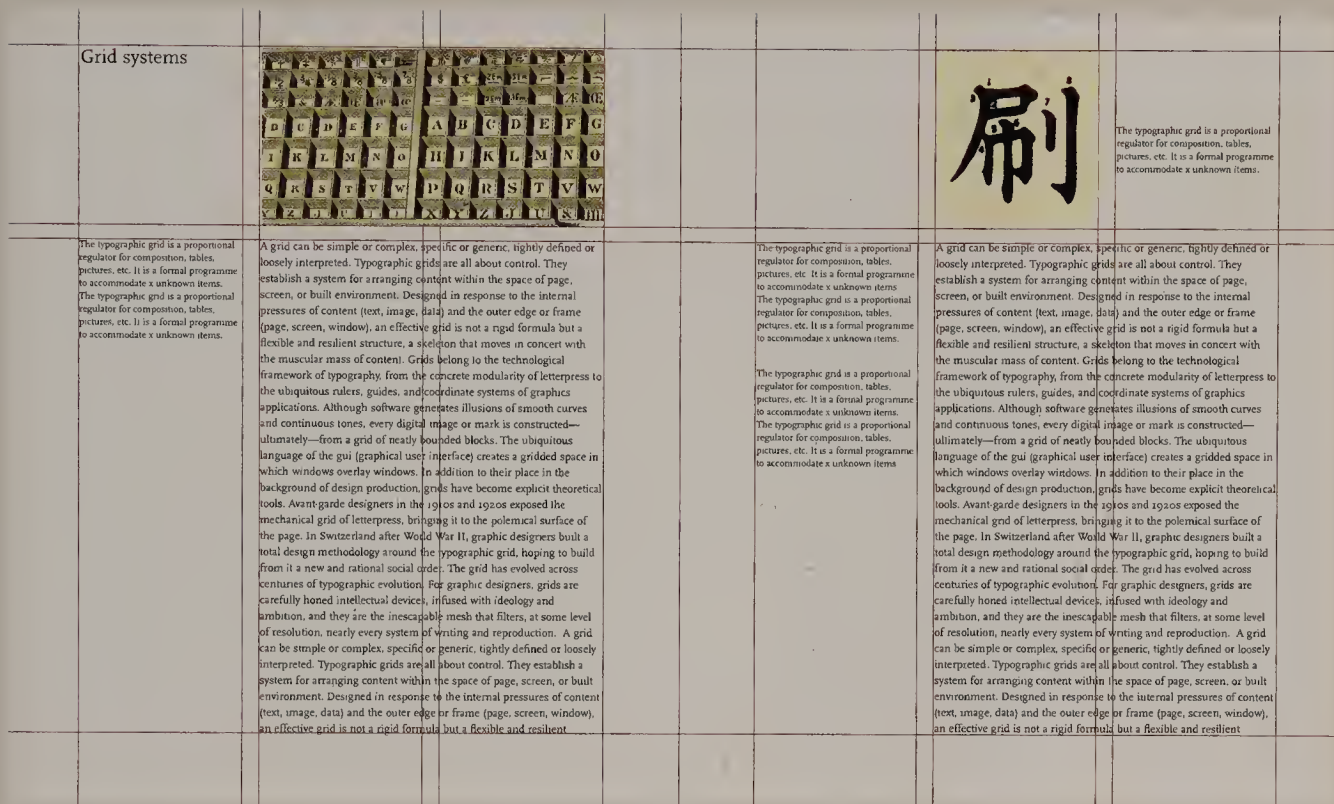 Grid systems
B C D E F G A B C D E F G
I K L M N O H I K L M N O
Q R S T V W P Q R S T V W
X Y Z J U &
The typographic grid is a proportional
regulator for composition, tables,
pictures, etc. It is a formal programme
to accommodate x unknown items.
The typographic grid is a proportional
regulator for composition, tables,
pictures, etc. It is a formal programme
to accommodate x unknown items.
A grid can be simple or complex, specific or generic, tightly defined or
loosely interpreted. Typographic grids are all about control. They
establish a system for arranging content within the space of page,
screen, or built environment. Designed in response to the internal
pressures of content (text, image, data) and the outer edge or frame
(page, screen, window), an effective grid is not a rigid formula but a
flexible and resilient structure, a skeleton that moves in concert with
the muscular mass of content. Grids belong to the technological
framework of typography, from the concrete modularity of letterpress to
the ubiquitous rulers, guides, and coordinate systems of graphics
applications. Although software generates illusions of smooth curves
and continuous tones, every digital image or mark is constructed—
ultimately—from a grid of neatly bounded blocks. The ubiquitous
language of the gui (graphical user interface) creates a gridded space in
which windows overlay windows. In addition to their place in the
background of design production, grids have become explicit theoretical
tools. Avant-garde designers in the 1910s and 1920s exposed the
mechanical grid of letterpress, bringing it to the polemical surface of
the page. In Switzerland after World War II, graphic designers built a
total design methodology around the typographic grid, hoping to build
from it a new and rational social order. The grid has evolved across
centuries of typographic evolution. For graphic designers, grids are
carefully honed intellectual devices, infused with ideology and
ambition, and they are the inescapable mesh that filters, at some level
of resolution, nearly every system of writing and reproduction. A grid
can be simple or complex, specific or generic, tightly defined or loosely
interpreted. Typographic grids are all about control. They establish a
system for arranging content within the space of page, screen, or built
environment. Designed in response to the internal pressures of content
(text, image, data) and the outer edge or frame (page, screen, window),
an effective grid is not a rigid formula but a flexible and resilient
刷
The typographic grid is a proportional
regulator for composition, tables,
pictures, etc. It is a formal programme
to accommodate x unknown items.
The typographic grid is a proportional
regulator for composition, tables,
pictures, etc. It is a formal programme
to accommodate x unknown items
The typographic grid is a proportional
regulator for composition, tables,
pictures, etc. It is a formal programme
to accommodate x unknown items.
The typographic grid is a proportional
regulator for composition, tables,
pictures, etc. It is a formal programme
to accommodate x unknown items.
The typographic grid is a proportional
regulator for composition, tables,
pictures, etc. It is a formal programme
to accommodate x unknown items
A grid can be simple or complex, specific or generic, tightly defined or
loosely interpreted. Typographic grids are all about control. They
establish a system for arranging content within the space of page,
screen, or built environment. Designed in response to the internal
pressures of content (text, image, data) and the outer edge or frame
(page, screen, window), an effective grid is not a rigid formula but a
flexible and resilient structure, a skeleton that moves in concert with
the muscular mass of content. Grids belong to the technological
framework of typography, from the concrete modularity of letterpress to
the ubiquitous rulers, guides, and coordinate systems of graphics
applications. Although software generates illusions of smooth curves
and continuous tones, every digital image or mark is constructed—
ultimately—from a grid of neatly bounded blocks. The ubiquitous
language of the gui (graphical user interface) creates a gridded space in
which windows overlay windows. In addition to their place in the
background of design production, grids have become explicit theoretical
tools. Avant-garde designers in the 1910s and 1920s exposed the
mechanical grid of letterpress, bringing it to the polemical surface of
the page. In Switzerland after World War II, graphic designers built a
total design methodology around the typographic grid, hoping to build
from it a new and rational social order. The grid has evolved across
centuries of typographic evolution. For graphic designers, grids are
carefully honed intellectual devices, infused with ideology and
ambition, and they are the inescapable mesh that filters, at some level
of resolution, nearly every system of writing and reproduction. A grid
can be simple or complex, specific or generic, tightly defined or loosely
interpreted. Typographic grids are all about control. They establish a
system for arranging content within the space of page, screen, or built
environment. Designed in response to the internal pressures of content
(text, image, data) and the outer edge or frame (page, screen, window),
an effective grid is not a rigid formula but a flexible and resilient